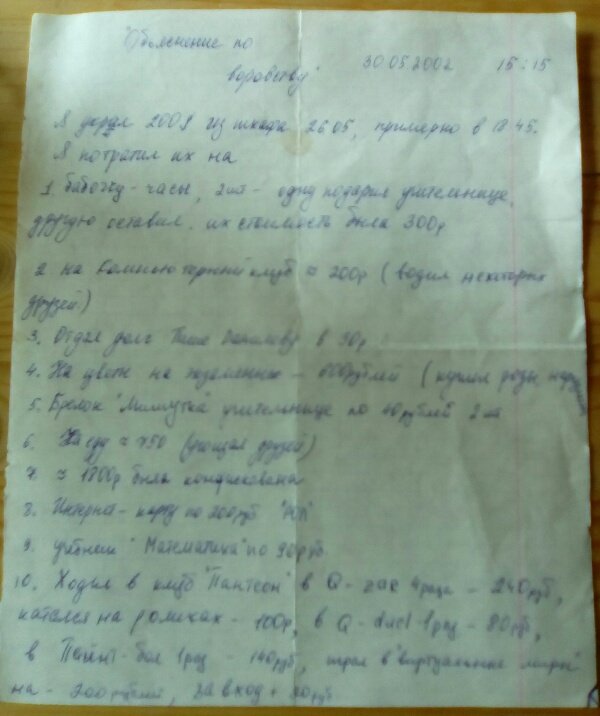 "Объяснение по
воровству" 30.05.2002 15:15
Я украл 200$ из шкафа 26.05, примерно в 18.45.
Я потратил их на
1 бабочку - часы, 2шт - одну подарил учительнице,
другую оставил. их стоимость была 300р
2. на компьютерный клуб ≈ 200р (водил некоторых
друзей)
3. Отдал долг Паше в 90р
4. На цветы на - рублей (купил розы
5. Брелок "Минутка" учительнице по 40 рублей 2шт
6. На еду ≈ 750 (угощал друзей)
7. ≈ 1800р была конфискована
8. Интернет - карту по 200 руб
9. учебник "Математика" по 90 руб
10. Ходил в клуб "Пантеон" в Q-zar 4 раза - 240 руб,
катался на роликах - 100р, в Q-duel 1 раз - 80 руб,
в Пейнт-бол 1 раз - 140 руб, играл в "виртуальные
на - 200 рублей, за вход +